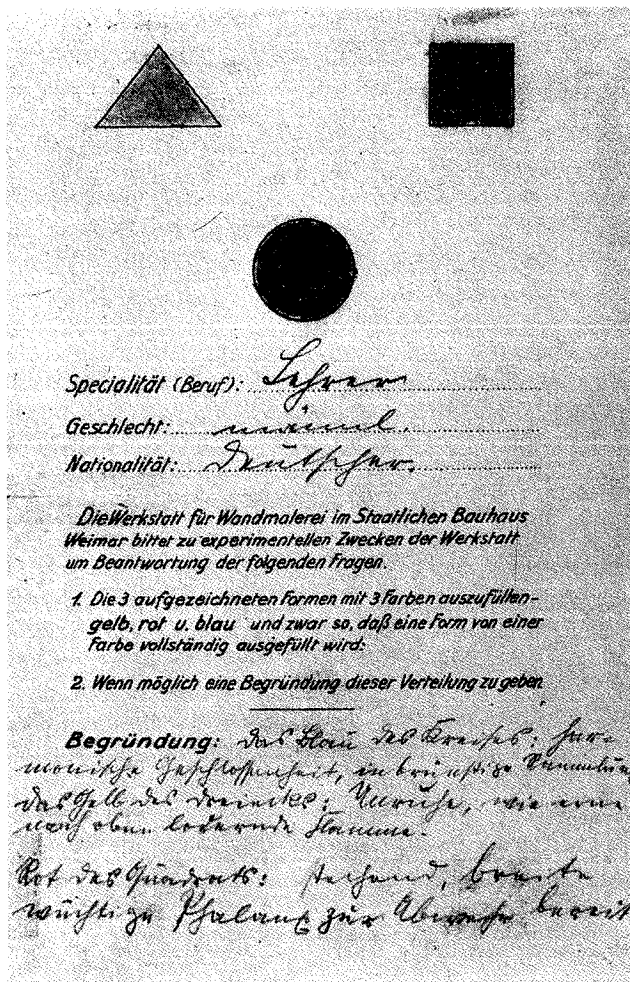 Specialität (Beruf): Lehrer
Geschlecht: männl.
Nationalität: Deutscher.
Die Werkstatt für Wandmalerei im Staatlichen Bauhaus
Weimar bittet zu experimentellen Zwecken der Werkstatt
um Beantwortung der folgenden Fragen.
1. Die 3 aufgezeichneten Formen mit 3 Farben auszufüllen-
gelb, rot u. blau und zwar so, daß eine Form von einer
Farbe vollständig ausgefüllt wird:
2. Wenn möglich eine Begründung dieser Verteilung zu geben
Begründung: Das Blau des Kreises: har-
monische Geschlossenheit, inbrünstige Sammlung
Das Gelb des Dreiecks: Unruhe, wie eine
nach oben lodernde Flamme.
Rot des Quadrats: stehend, breite
wuchtige Phalanx zur Abwehr bereit